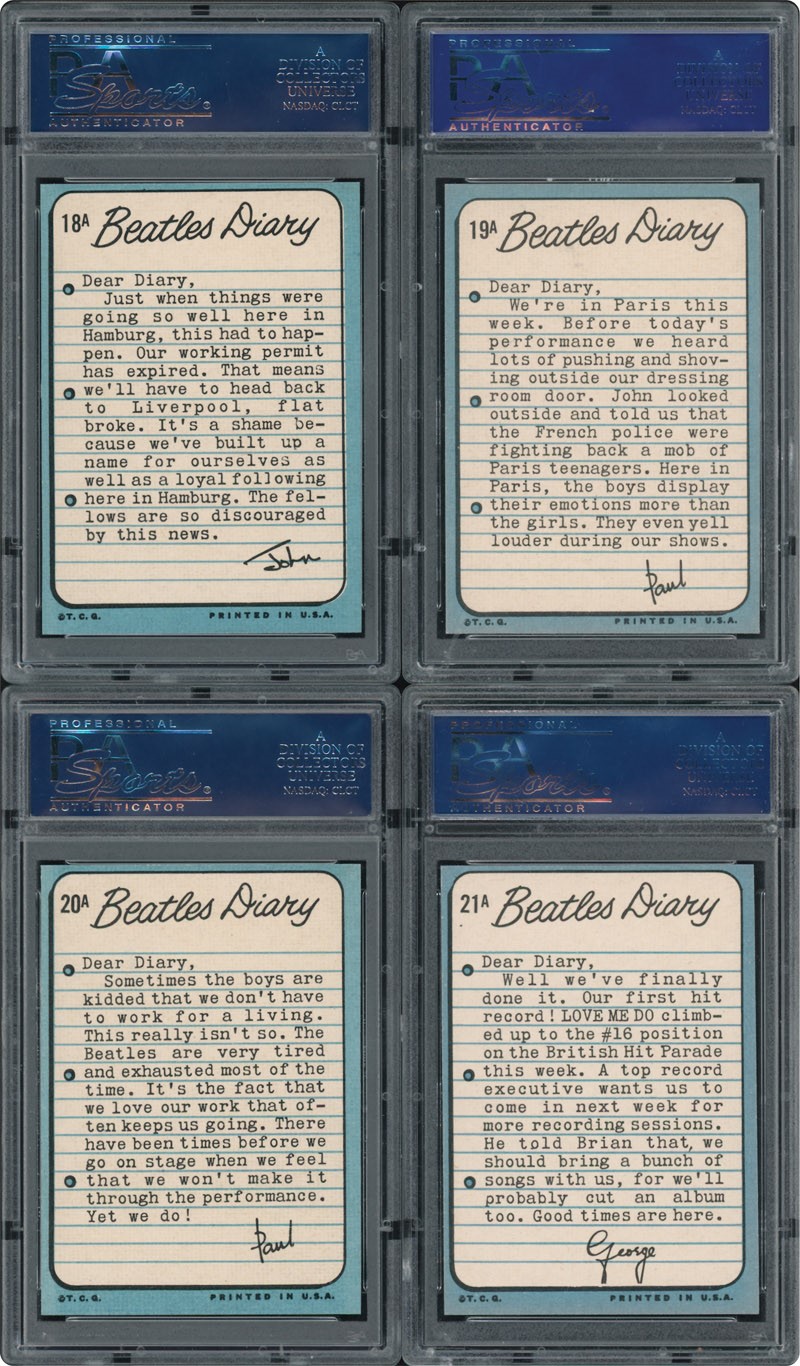 PROFESSIONAL
PSA
Sports®
AUTHENTICATOR
A
DIVISION OF
COLLECTORS
UNIVERSE
NASDAQ: CLCT
18A Beatles Diary
Dear Diary,
Just when things were
going so well here in
Hamburg, this had to hap-
pen. Our working permit
has expired. That means
we'll have to head back
to Liverpool, flat
broke. It's a shame be-
cause we've built up a
name for ourselves as
well as a loyal following
here in Hamburg. The fel-
lows are so discouraged
by this news.
John
©T.C.G. PRINTED IN U.S.A.
PROFESSIONAL
PSA
Sports®
AUTHENTICATOR
A
DIVISION OF
COLLECTORS
UNIVERSE
NASDAQ: CLCT
19A Beatles Diary
Dear Diary,
We're in Paris this
week. Before today's
performance we heard
lots of pushing and shov-
ing outside our dressing
room door. John looked
outside and told us that
the French police were
fighting back a mob of
Paris teenagers. Here in
Paris, the boys display
their emotions more than
the girls. They even yell
louder during our shows.
Paul
©T.C.G. PRINTED IN U.S.A.
PROFESSIONAL
PSA
Sports®
AUTHENTICATOR
A
DIVISION OF
COLLECTORS
UNIVERSE
NASDAQ: CLCT
20A Beatles Diary
Dear Diary,
Sometimes the boys are
kidded that we don't have
to work for a living.
This really isn't so. The
Beatles are very tired
and exhausted most of the
time. It's the fact that
we love our work that of-
ten keeps us going. There
have been times before we
go on stage when we feel
that we won't make it
through the performance.
Yet we do!
Paul
©T.C.G. PRINTED IN U.S.A.
PROFESSIONAL
PSA
Sports®
AUTHENTICATOR
A
DIVISION OF
COLLECTORS
UNIVERSE
NASDAQ: CLCT
21A Beatles Diary
Dear Diary,
Well we've finally
done it. Our first hit
record! LOVE ME DO climb-
ed up to the #16 position
on the British Hit Parade
this week. A top record
executive wants us to
come in next week for
more recording sessions.
He told Brian that, we
should bring a bunch of
songs with us, for we'll
probably cut an album
too. Good times are here.
George
©T.C.G. PRINTED IN U.S.A.